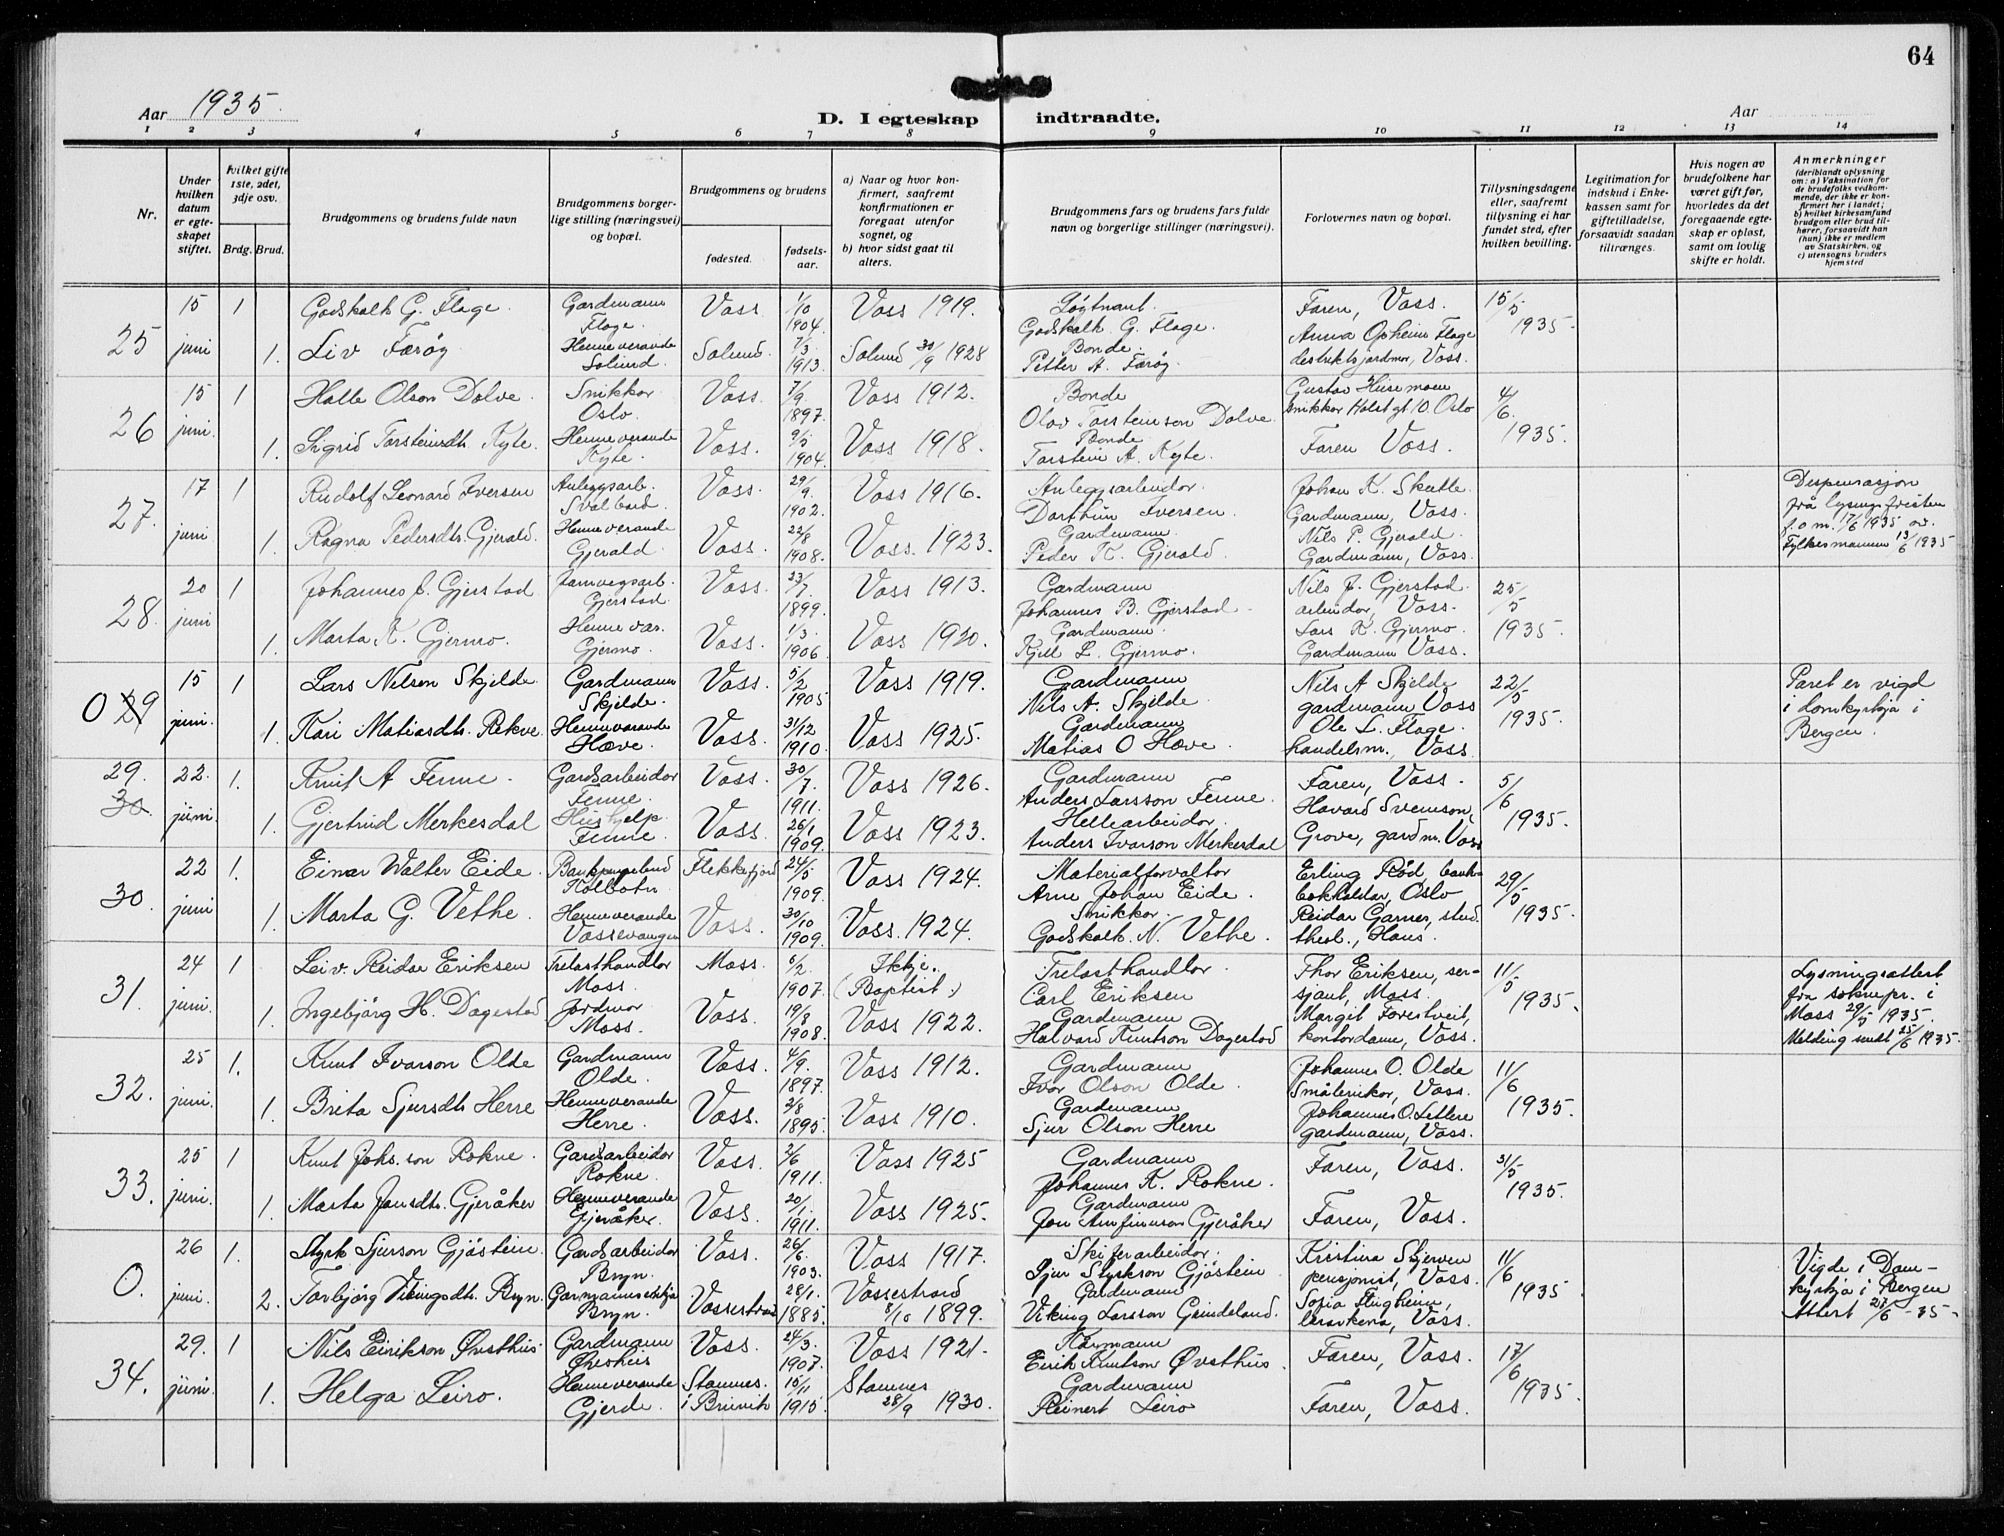 64
Aar 1935.
D. I egteskap indtraadte.
Aar
1 2 3 4 5 6 7 8 9 10 11 12 13 14
Nr.
Under hvilken datum er egteskapet stiftet.
hvilket gifte 1ste, 2det, 3dje osv.
Brdg. Brud.
Brudgommens og brudens fulde navn
Brudgommens borgerlige stilling (næringsvei) og bopæl.
Brudgommens og brudens
fødested.
fødselsaar.
a) Naar og hvor konfirmert, saafremt konfirmationen er foregaat utenfor sognet, og
b) hvor sidst gaat til alters.
Brudgommens fars og brudens fars fulde navn og borgerlige stillinger (næringsvei).
Forlovernes navn og bopæl.
Tillysningsdagene eller, saafremt tillysning ei har fundet sted, efter hvilken bevilling.
Legitimation for indskud i Enkekassen samt for giftetilladelse, forsaavidt saadan tiltrænges.
Hvis nogen av brudefolkene har været gift før, hvorledes da det foregaaende egteskap er opløst, samt om lovlig skifte er holdt.
Anmerkninger (deriblandt oplysning om: a) Vaksination for de brudefolks vedkommende, der ikke er konfirmert her i landet; b) hvilket kirkesamfund brudgom eller brud tilhører, forsaavidt han (hun) ikke er medlem av Statskirken, og c) utensogns bruders hjemsted
25 15 juni 1 Godskalk G. Flage. Gardmann Flage. Voss. 1/10 1904. Voss 1919. Løytnant. Godskalk G. Flage. Faren, Voss. 15/5 1935.
1. Liv Færøy Heimeverande Solund. Solund. 7/3 1913. Solund 30/9 1928 Bonde. Petter A. Færøy. Anna Opheim Flage destriktsjordmor, Voss.
26 15 juni. 1 Halle Olson Dolve. Snikkar Oslo. Voss. 7/9. 1897. Voss 1912. Bonde Olav Torsteinson Dolve. Gustav Husemoen snikkar Holst gt 10. Oslo 4/6. 1935.
1. Sigrid Torsteinsdtr. Kyte. Heimeverande Kyte. Voss. 9/5 1904. Voss 1918. Bonde. Torstein A. Kyte. Faren Voss.
27. 17 juni 1 Rudolf Leonard Iversen Anleggsarb. Svalbard. Voss. 29/9. 1902. Voss 1916. Anleggsarbeidar. Dorthin Iversen. Johan K. Skutle. Gardmann, Voss. Dispensasjon frå lysingsfristen f.o.m. 17/6 1935 av. Fylkesmannen 13/6 1935
1. Ragna Pedersdtr. Gjerald. Heimeverande Gjerald. Voss. 22/8 1908. Voss. 1923. Gardmann. Peder K. Gjerald. Nils P. Gjerald. Gardmann, Voss.
28. 20 juni 1 Johannes J. Gjerstad Jarnvegsarb. Gjerstad. Voss. 23/7. 1899. Voss 1913. Gardmann Johannes B. Gjerstad. Nils J. Gjerstad. arbeidar, Voss. 25/5 1935.
1. Marta K. Gjermo. Heimevær. Gjermo. Voss. 1/3. 1906 Voss 1920. Gardmann. Kjell L. Gjermo. Lars K. Gjermo. Gardmann Voss.
0 29 15 juni. 1 Lars Nilsen Skjelde. Gardmann Skjelde. Voss. 5/2 1905 Voss 1919. Gardmann Nils A. Skjelde. Nils A Skjelde gardmann, Voss 22/5 1935. Paret er vigd i domkyrkja i Bergen.
1. Kari Matiasdtr. Rekve Heimeverande Hæve. Voss. 31/12 1910. Voss 1925. Gardmann Matias O Hæve. Ole L. Flage. handelsm., Voss.
29. 30 22. juni. 1. Knut A Fenne. Gardsarbeidar Fenne. Voss. 30/7. 1911. Voss 1926. Gardmann Anders Larsson Fenne. Faren, Voss. 5/6 1935.
1. Gjertrud Merkesdal Hushjelp Fenne. Voss. 26/1 1909. Voss 1923. Hellearbeidar. Anders Ivarson Merkesdal Havard Svenson, Grove, gardm. Voss
30. 22 juni 1. Einar Walter Eide. Kolbotn. Flekkefjord 24/5 1909. Voss 1924. Materialforvaltar Arne Johan Eide. Erling Röd, bankbokholdar, Oslo 29/5 1935.
1. Marta G. Vethe. Heimeverande Vossevangen Voss. 30/10 1909. Voss. 1924. Snikkar. Godskalk N. Vethe. Reidar Garnes, stud. theol., Haus.
31. 24 juni. 1 Leiv. Reidar Eriksen Trelasthandlar Moss. Moss. 6/2. 1907. Ikkje. (Baptist.) Trelasthandlar. Carl Eriksen Thor Eriksen, sersjant, Moss. 11/5 1935. Lysningsattest fra soknepr. i Moss 29/5 1935. Melding sendt 25/6 1935.
1. Ingebjörg H. Dagestad Jordmor Moss. Voss. 19/8 1908. Voss 1922. Gardmann Halvard Knutson Dagestad Margit Forestveit, kontordame, Voss.
32. 25 juni. 1. Knut Ivarson Olde Gardmann Olde. Voss. 4/9. 1897. Voss 1912. Gardmann Ivar Olson Olde. Johannes O. Olde Småleirikar, Voss. 11/6 1935.
1. Brita Sjursdtr Herre Heimeverande Herre. Voss. 2/8 1895. Voss 1910. Gardmann Sjur Olson Herre Johannes O. Lettere gardmann, Voss.
33. 25 juni. 1 Knut Johs. son Rokne. Gardsarbeidar Rokne. Voss. 2/6 1911. Voss 1925 Gardmann Johannes K. Rokne. Faren, Voss. 31/5 1935.
1. Marta Jonsdtr. Gjeråker Heimeverande Gjeråker. Voss. 20/1. 1911. Voss 1925. Gardmann Jon Arnfinnson Gjeråker Faren, Voss.
0. 26 juni. 1. Styrk Sjurson Gjöstein. Gardsarbeidar Bryn. Voss. 26/6. 1903. Voss 1917. Skiferarbeidar. Sjur Styrkson Gjöstein Kristina Skjerven pensjonist, Voss. 11/6 1935 Vigde i Domkyrkja i Bergen Attest 27/6 - 35 -
2. Torbjørg Vikingsdtr. Bryn. Garmannsenkja Bryn. Vossestrand 28/1. 1885. Vossestrand 8/10 1899. Gardmann Viking Larsson Grindeland. Sofia Flugheim, Voss.
34. 29. juni. 1 Nils Eirikson Øvsthus. Gardmann Øvsthus Voss. 24/3. 1907. Voss 1921. Kårmann Eirik Knutson Øvsthus. Faren, Voss. 17/6 1935.
1. Helga Leiro. Heimeverande Gjerde. Stamnes. i Bruvik 15/11 1915. Stamnes 28/9 1930. Gardmann Reinert Leiro Faren, Voss.